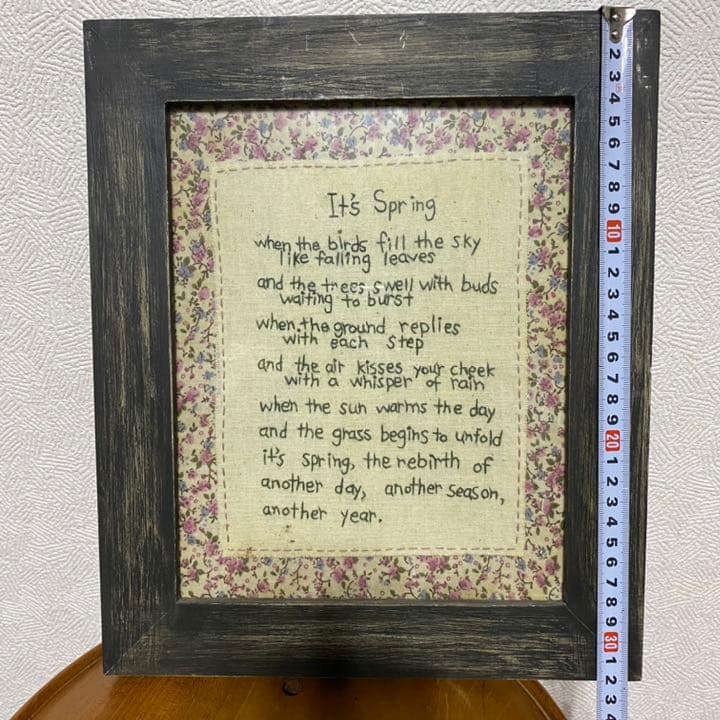 It's Spring
when the birds fill the sky
like falling leaves
and the trees swell with buds
waiting to burst
when the ground replies
with each step
and the air kisses your cheek
with a whisper of rain
when the sun warms the day
and the grass begins to unfold
it's spring, the rebirth of
another day, another season,
another year.
2
3
4
5
6
7
8
9
10
1
2
3
4
5
6
7
8
9
20
1
2
3
4
5
6
7
8
9
30
1
2
3
4